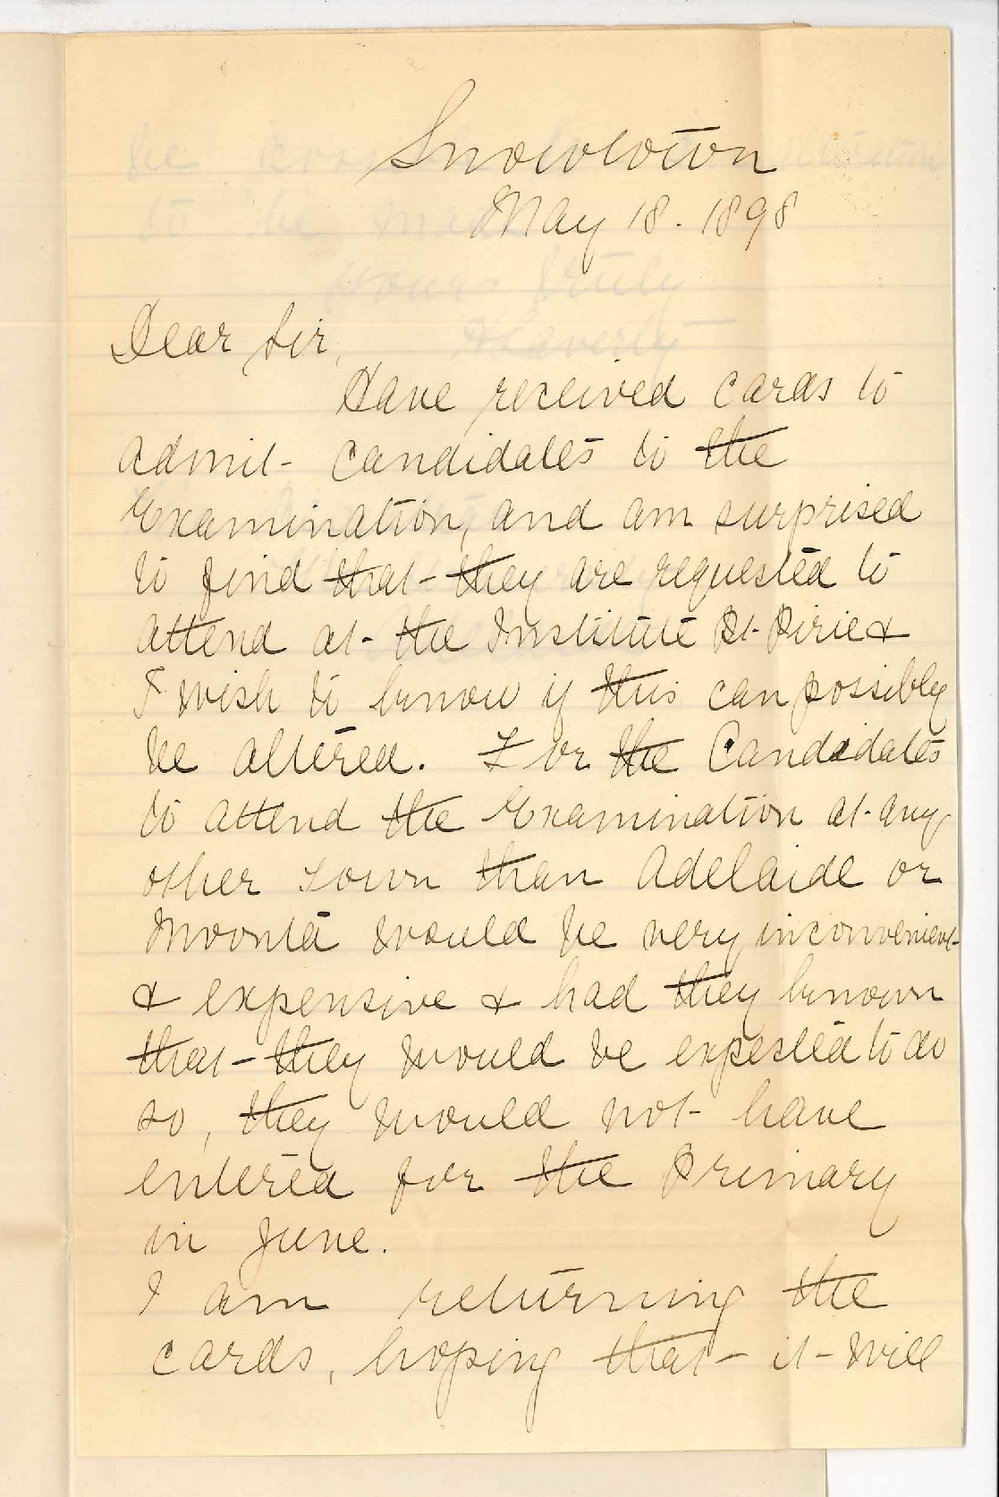 Snowtown
May 18. 1898
Dear Sir,
Have received cards to
admit candidates to the
Examination, and am surprised
to find that they are requested to
attend at the Institute Pt. Pirie &
I wish to know if this can possibly
be altered. For the Candidates
to attend the Examination at any
other town than Adelaide or
Moonta would be very inconvenient
& expensive & had they known
that they would be expected to do
so, they would not have
entered for the Primary
in June.
I am returning the
cards, hoping that it will